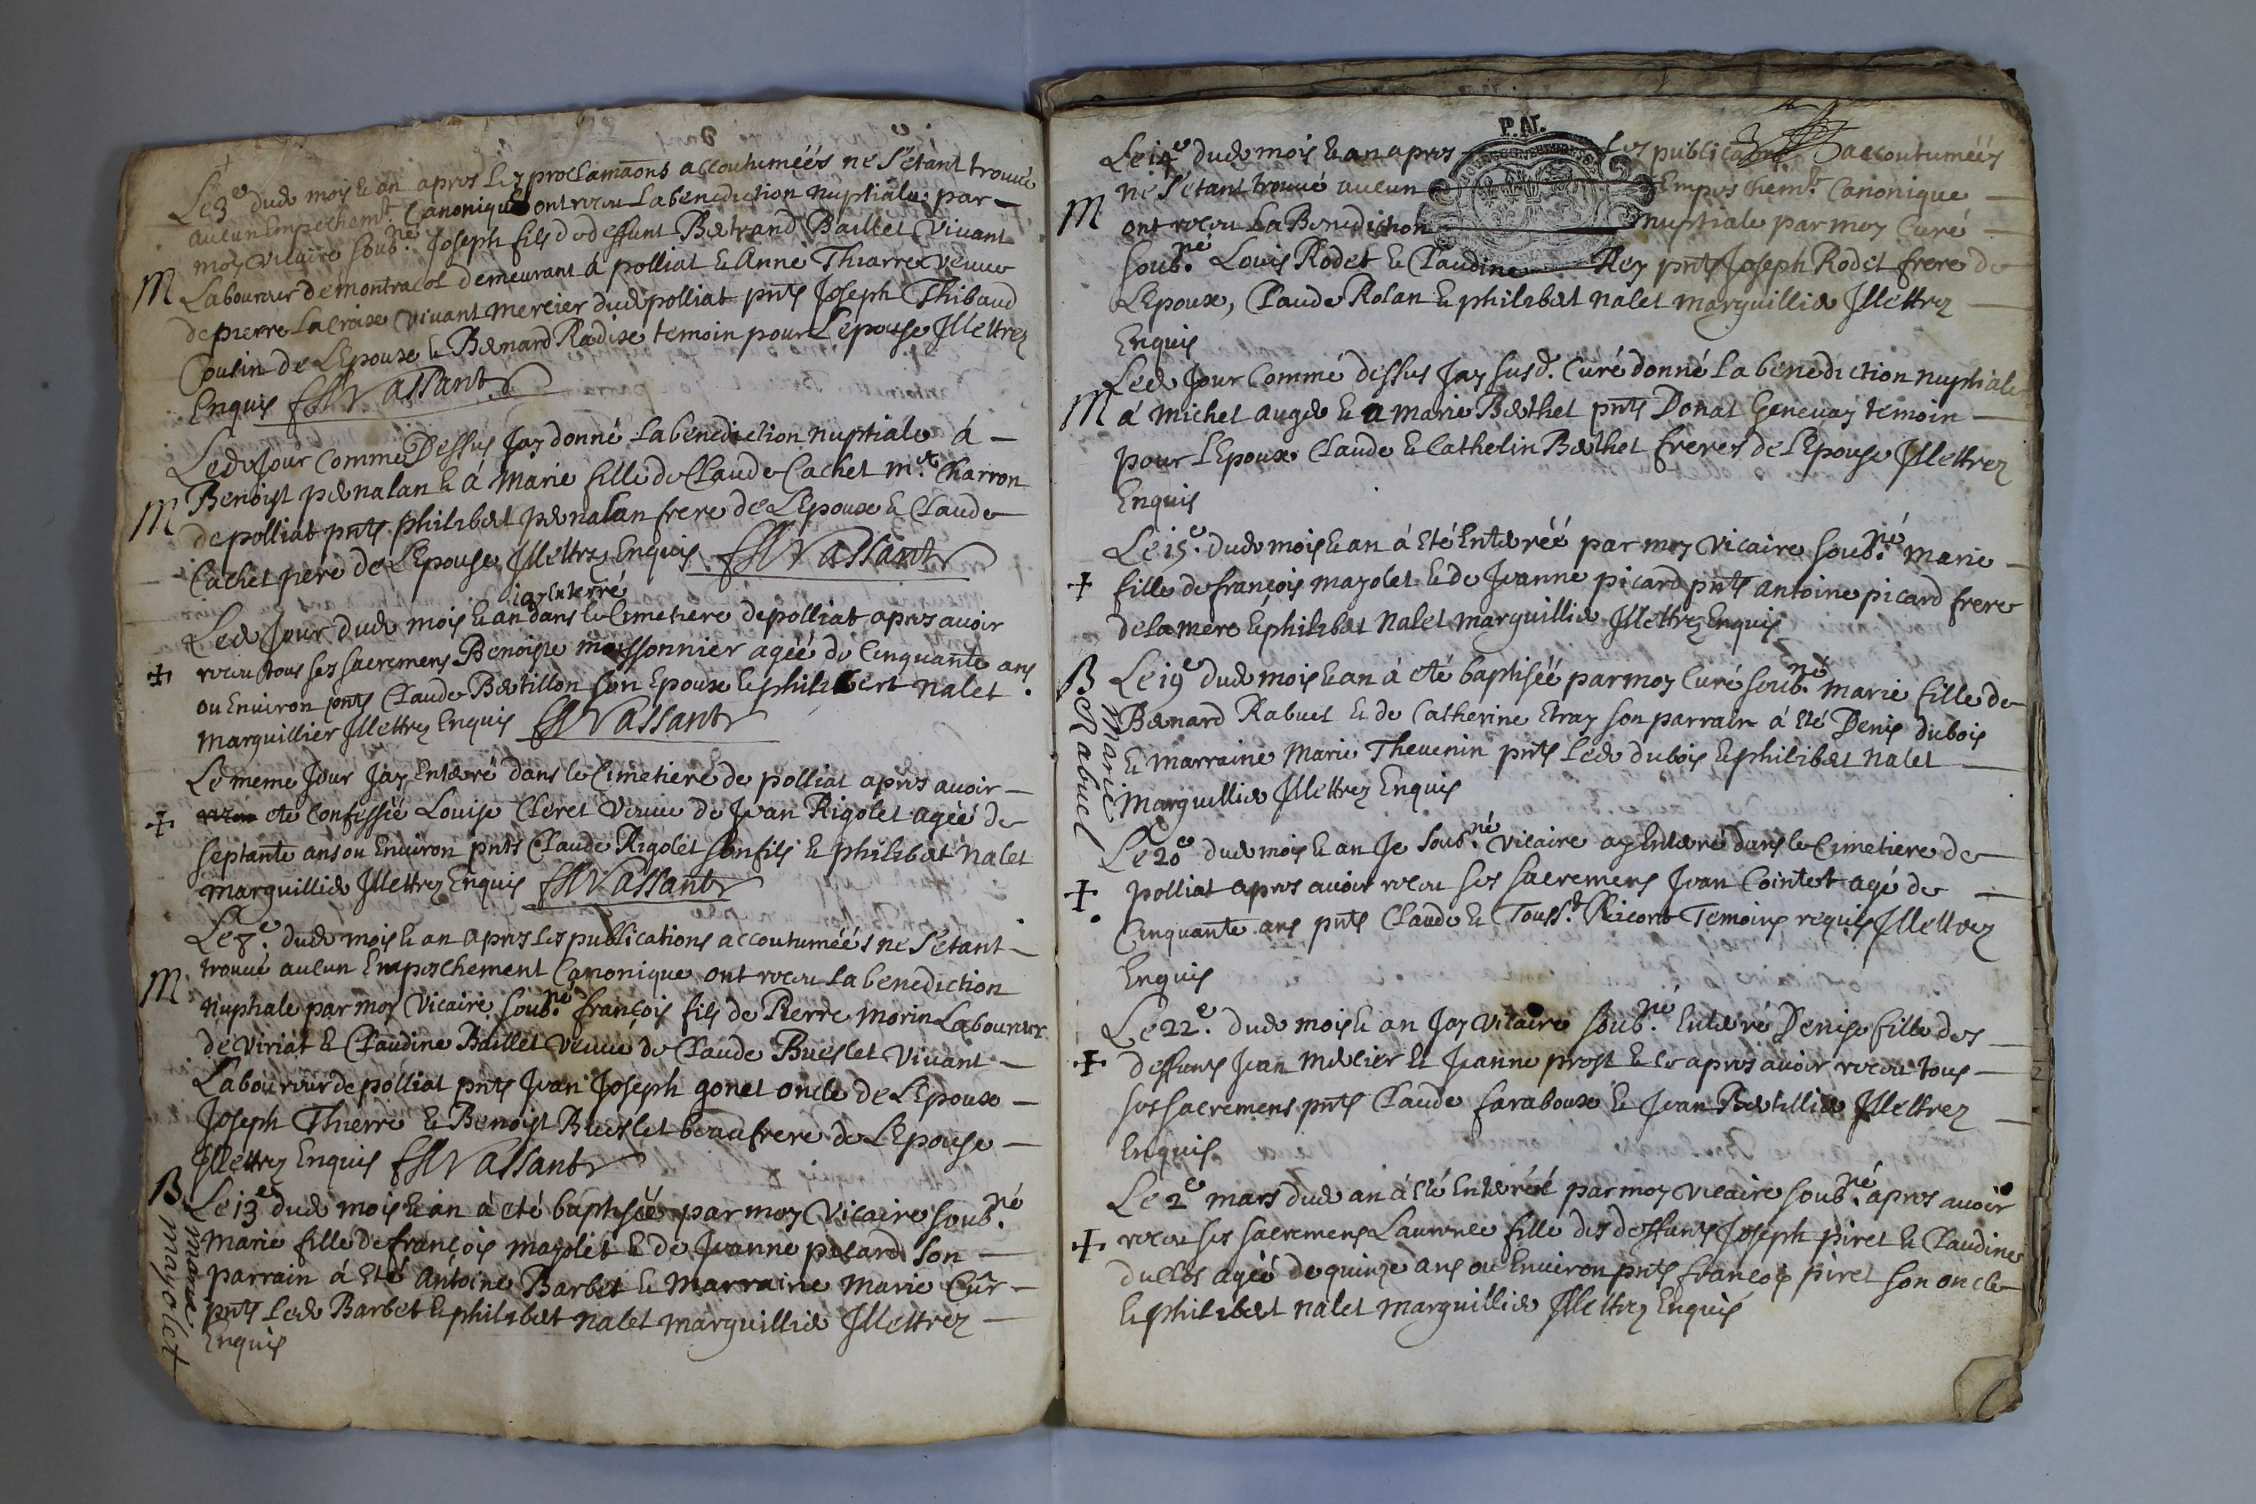 Le 3e dud mois & an apres les proclamaons accoutumées ne s'étant trouvé
aucun Empechemt. Canonique ont recu La benediction nuptiale par
M
moy vicaire soub.né Joseph fils de deffunt Bertrand Baillet Vivant
Laboureur de montracol demeurant á polliat & Anne Thiarre veuve
de pierre Lacroix vivant mercier dud polliat pnts Joseph Thibaud
Cousin de L'Epoux & Bernard Radix temoin pour L'epouse Illettrez
Enquis Vassant
Led Jour Comme Dessus Jay donné La benediction nuptiale á
M
Benoist penalan & á Marie fille de Claude Cachet mre. Charron
de polliat pnts philibert penalan frere de L'Epoux & Claude
Cachet pere de L'epouse Illettrez Enquis Vassant
jay Enterré
Led Jour dud mois & an dans le Cimetiere de polliat apres avoir
recu tous ses sacremens Benoiste moissonnier agée de Cinquante ans
ou Environ pnts Claude Bertillon son Epoux & philibert nalet
marguillier Illettrez Enquis Vassant
Le meme Jour Jay Enterré dans le Cimetiere de polliat apres avoir
recu eté Confessée Louise Cleret Veuve de Jean Rigolet agée de
septante ans ou Environ pnts Claude Rigolet son fils & philibert nalet
marguillier Illettrez Enquis Vassant
Le 8e. dud mois & an apres les publications accoutumées ne s'étant
trouvé aucun Empeschement Canonique ont recu La benediction
M
nuptiale par moy Vicaire soub.né françois fils de Pierre morin Laboureur
de viriat & Claudine Baillet veuve de Claude Bueslet Vivant
Laboureur de polliat pnts Jean Joseph gonet oncle de L'Epoux
Joseph Thierre & Benoist Bueslet beaufrere de L'Epouse
Illettrez Enquis Vassant
B
marie
mayolet
Le 13e dud mois & an á eté baptisée par moy Vicaire soub.né
Marie fille de françois mayolet & de Jeanne picard son
parrain á eté Antoine Barbet & Marraine Marie Cûr
pnts Led Barbet & philibert nalet marguillier Illettrez
Enquis
P.AI.
Le 14e dud mois & an apres Les publications accoutumées
ne s'étant trouvé aucun Empeschemt. Canonique
M
ont recu La Benediction nuptiale par moy Curé
soub.né Louis Rodet & Claudine Rey pnts Joseph Rodet frere de
L'Epoux, Claude Rolan & philibert nalet marguillier Illettrez
Enquis
Led Jour Comme dessus Jay susd. Curé donné La benediction nuptiale
M
á Michel auger & a marie Berthet pnts Donat Genevay temoin
pour L'Epoux Claude & Cathelin Berthet freres de L'Epouse Illettrez
Enquis
Le 15e. dud mois & an á eté Enterréé par moy Vicaire soub.né Marie
fille de françois mayolet & de Jeanne picard pnts antoine picard frere
de la mere & philibert nalet marguillier Illettrez Enquis
B
Marie
Rabuel
Le 19e dud mois & an á eté baptisée par moy Curé soub.né Marie fille de
Bernard Rabuel & de Catherine Etray son parrain á eté Denis dubois
& marraine Marie Thevenin pnts Led dubois & philibert nalet
Marguillier Illettrez Enquis
Le 20e dud mois & an Je soub.né Vicaire ay Enterré dans le Cimetiere de
polliat apres avoir recu ses sacremens Jean Cointet agé de
Cinquante ans pnts Claude & Touss.t Ricont Temoins requis Illettrez
Enquis
Le 22e. dud mois & an Jay Vicaire soub.né Enterré Denise fille des
deffunts Jean mercier & Jeanne prost & ce apres avoir recu tous
ses sacremens pnts Claude faraboux & Jean Bertillier Illettrez
Enquis
Le 2e mars dud an á eté Enterréé par moy vicaire soub.né apres avoir
recu ses sacremens Laurence fille des deffunts Joseph piret & Claudine
duclos agéé de quinze ans ou Environ pnts françois piret son oncle
& philibert nalet marguillier Illettrez Enquis